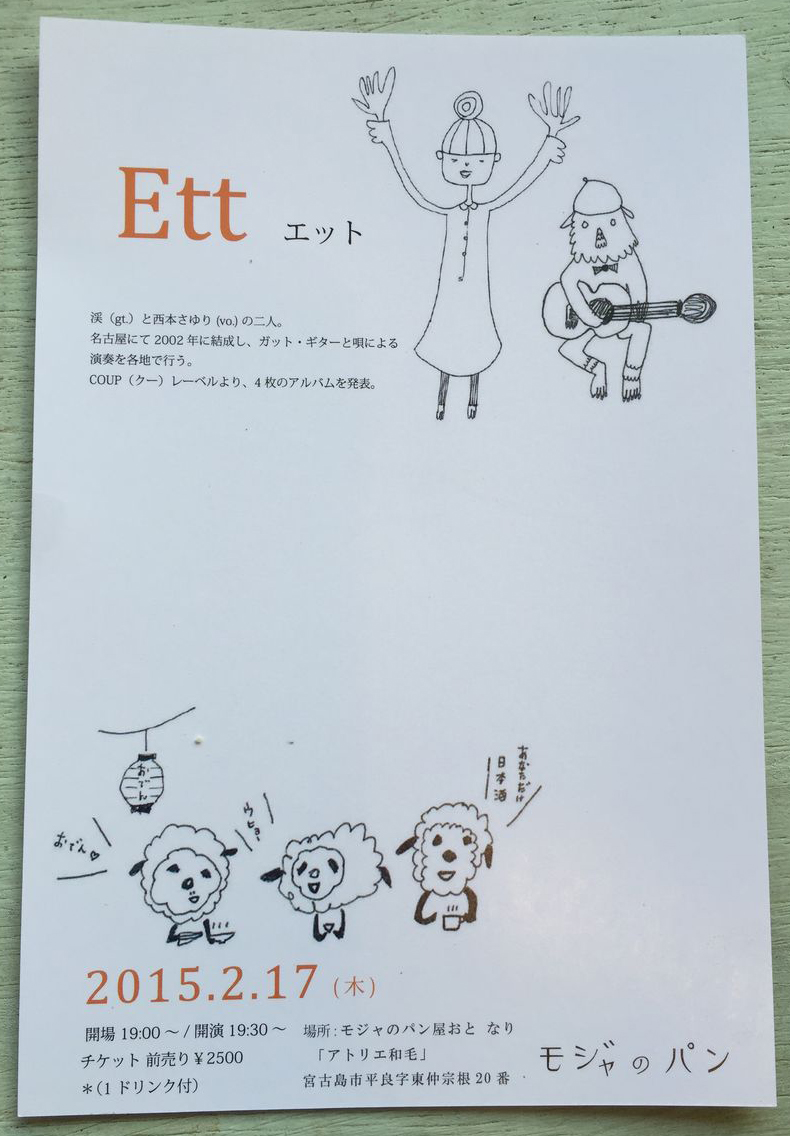 Ett エット
渓（gt.）と西本さゆり (vo.) の二人。
名古屋にて 2002 年に結成し、ガット・ギターと唄による
演奏を各地で行う。
COUP（クー）レーベルより、4 枚のアルバムを発表。
おでん
おでん♡
ウヒョー
あなただけ
日本酒
2015.2.17（木）
開場 19:00 ～ / 開演 19:30 ～
チケット 前売り ¥2500
＊（1 ドリンク付）
場所 : モジャのパン屋おと なり
「アトリエ和毛」
宮古島市平良字東仲宗根 20 番
モジャのパン